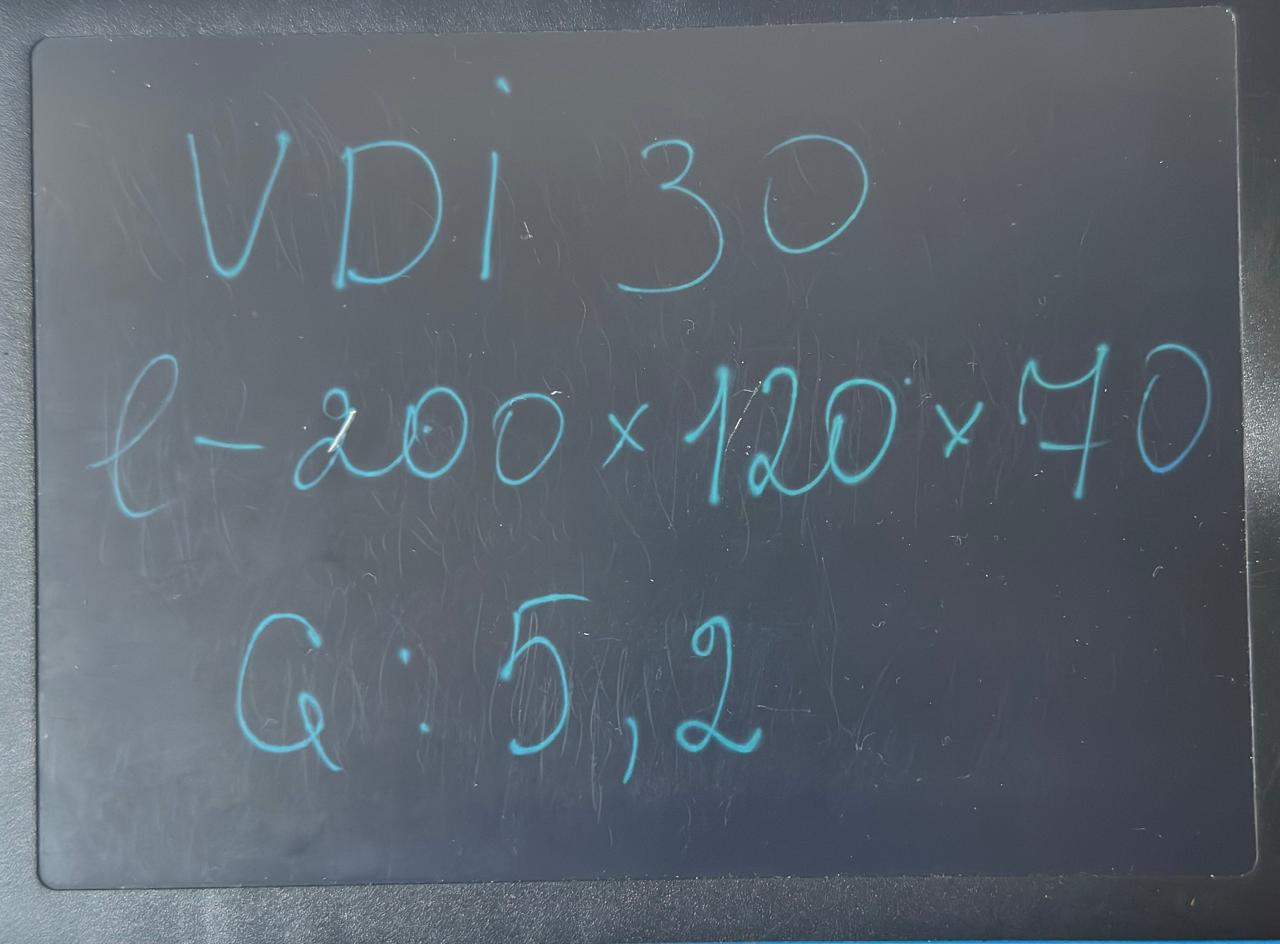 VDi 30
l - 200 x 120 x 70
Q : 5,2